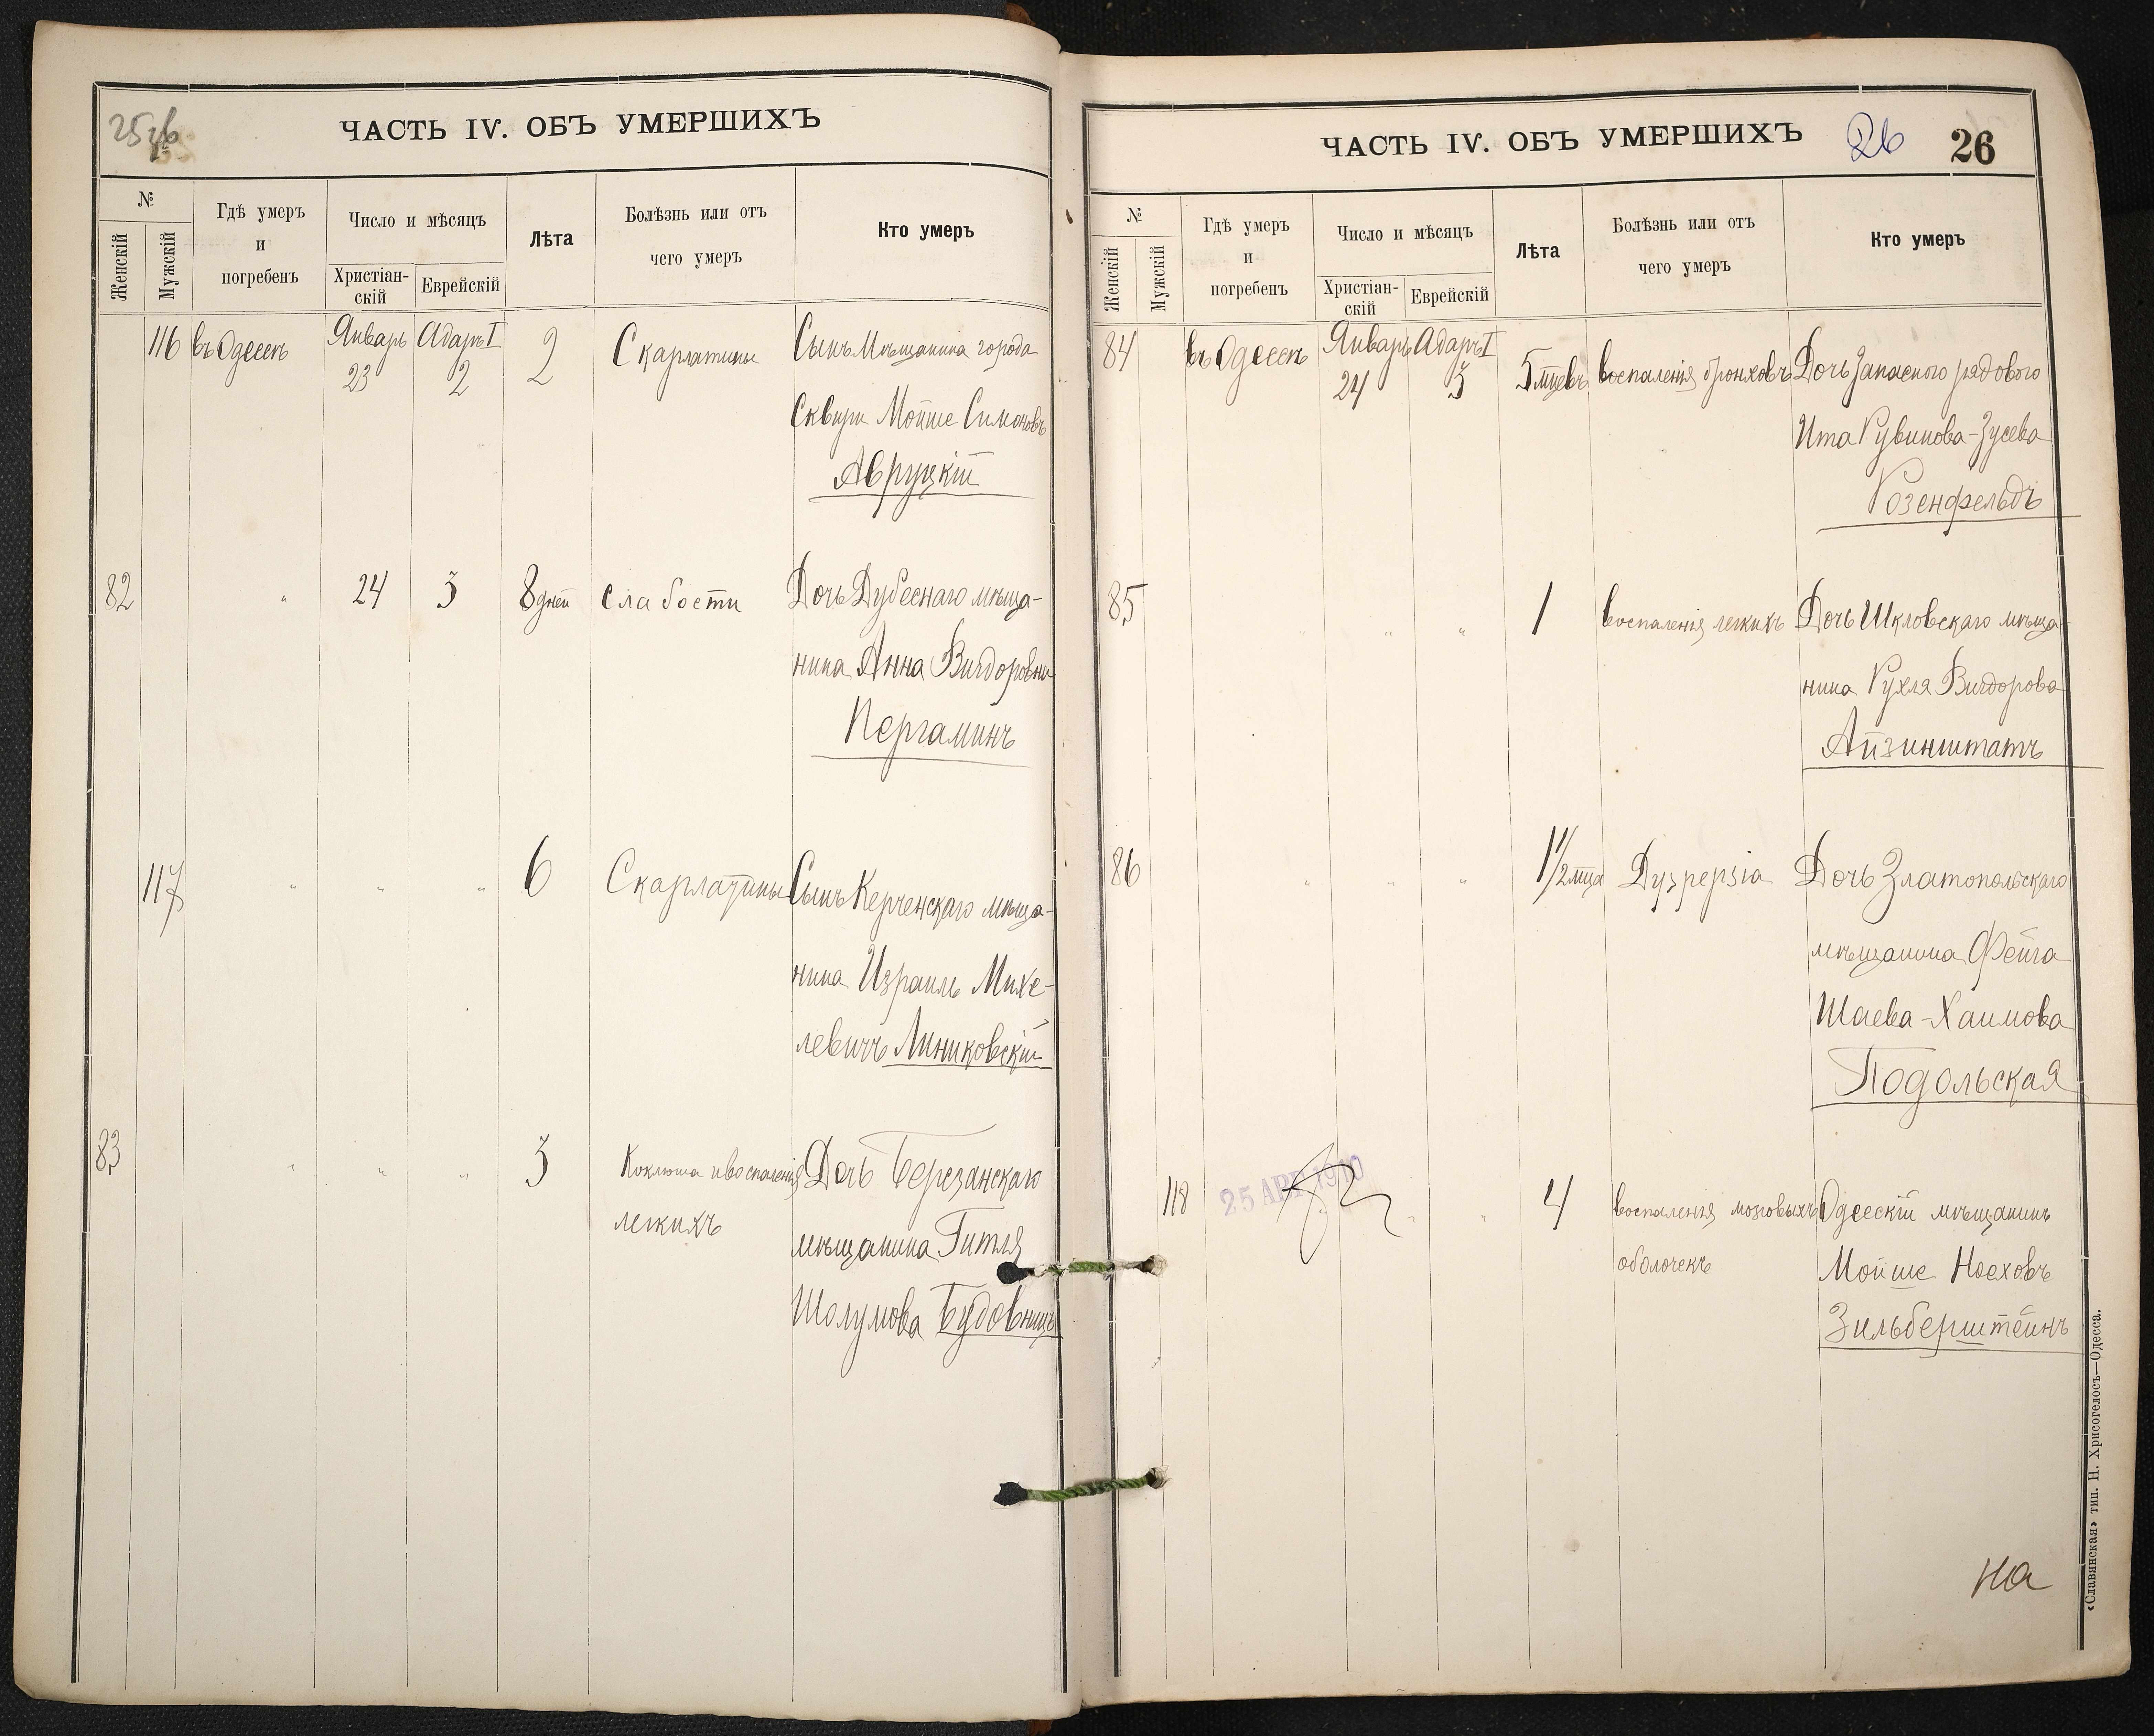 ЧАСТЬ IV. ОБЪ УМЕРШИХЪ
№
Женскій
Мужскій
Гдѣ умеръ
и
погребенъ
Число и мѣсяцъ
Христіан-
скій
Еврейскій
Лѣта
Болѣзнь или отъ
чего умеръ
Кто умеръ
116 въ Одессѣ Январь 23 Адаръ I 2 2 Скарлатины Сынъ Мѣщанина города
Сквиры Мойше Симоновъ
Авруцкій
82 " 24 3 8 дней Слабости Дочь Дубеснаго мѣща-
нина Анна Вигдоровна
Пергаминъ
117 " " " 6 Скарлатины Сынъ Керченскаго мѣща-
нина Израиль Михе-
левичъ Линиковскій
83 " " " 3 Коклюша и воспаленія Дочь Березанскаго
легкихъ
мѣщанина Гитля
Шолумова Будовницъ
ЧАСТЬ IV. ОБЪ УМЕРШИХЪ 26 26
№
Женскій
Мужскій
Гдѣ умеръ
и
погребенъ
Число и мѣсяцъ
Христіан-
скій
Еврейскій
Лѣта
Болѣзнь или отъ
чего умеръ
Кто умеръ
84 въ Одессѣ Январь 24 Адаръ I 3 5 мцевъ воспаленія бронховъ Дочь Запасного рядового
Ита Рувинова-Зусева
Розенфельдъ
85 " " " 1 воспаленія легкихъ Дочь Шкловскаго мѣща-
нина Рухля Вигдорова
Айзинштатъ
86 " " " 1 1/2 мца Dyspepsia Дочь Златопольскаго
мѣщанина Фейга
Шаева-Хаимова
Подольская
118 25 АПР 1910 " " 4 воспаленія мозговыхъ Одесскій мѣщанинъ
оболочекъ Мойше Носховъ
Зильберштейнъ
на
«Славянская» тип. Н. Хрисогелосъ—Одесса.